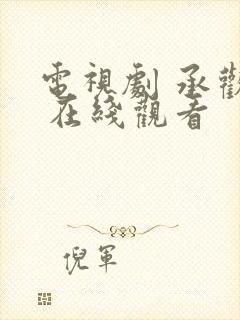 電視劇 承歡
在綫觀看
倪軍